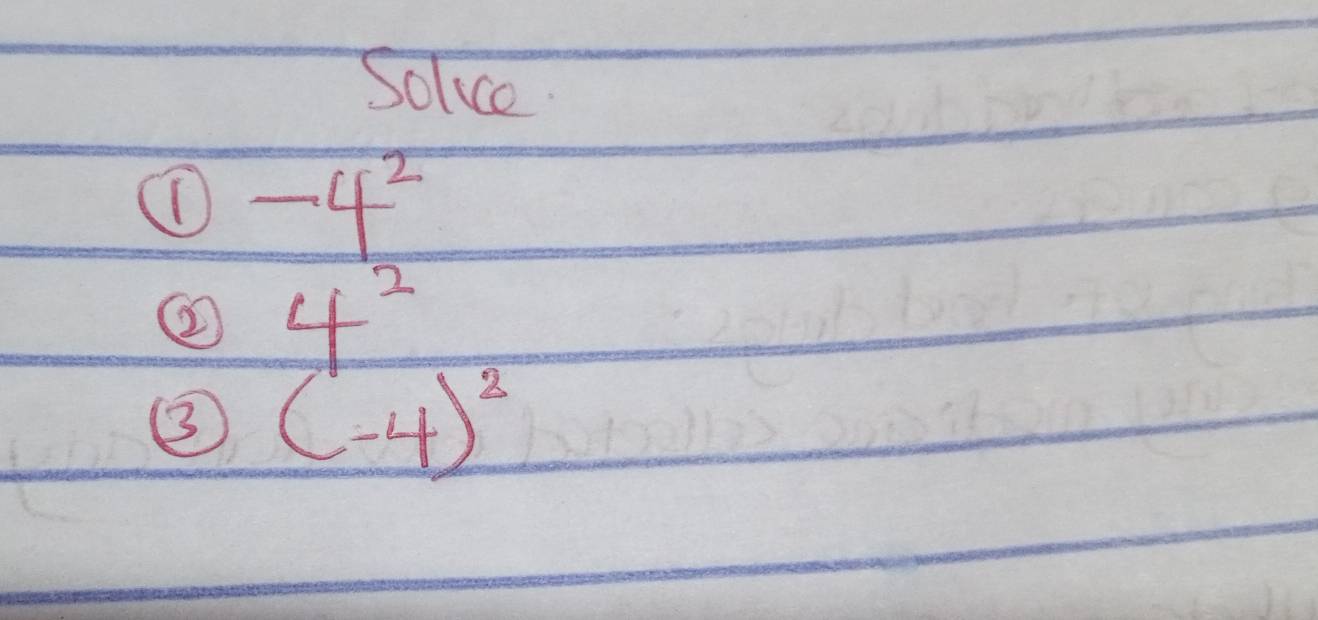 Solve.
① -4²
② 4²
③ (-4)²